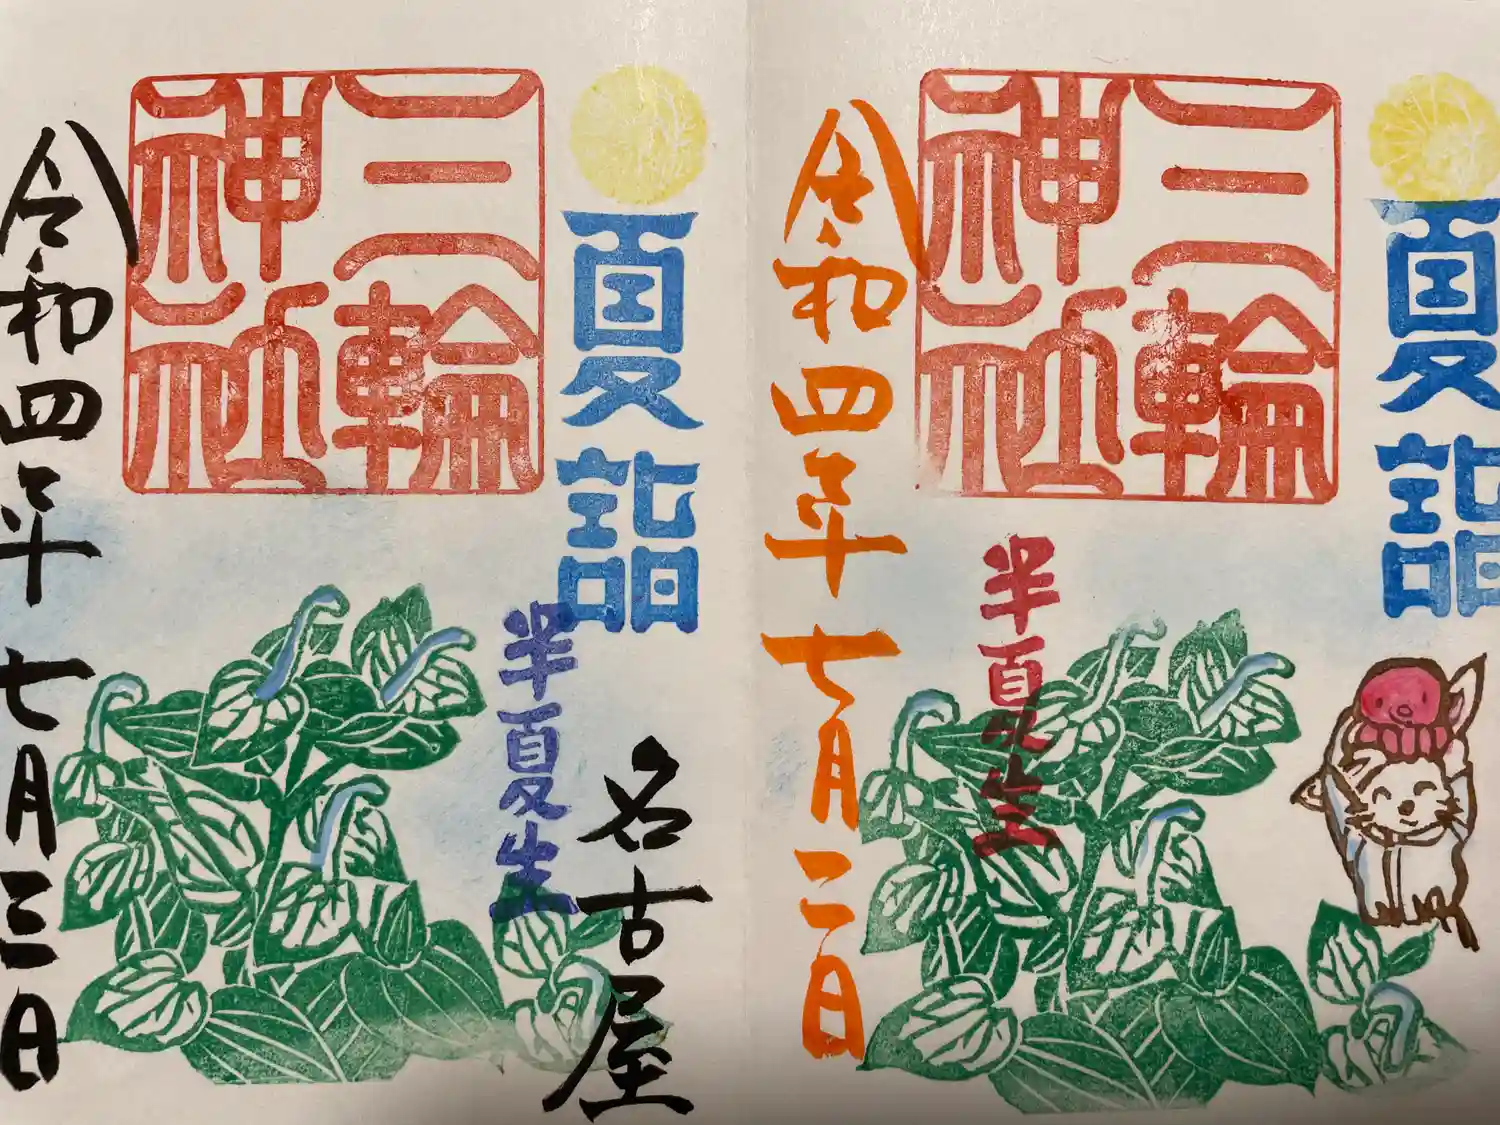 夏詣
半夏生
三輪
神社
令和四年七月二日
夏詣
半夏生
名古屋
三輪
神社
令和四年七月三日